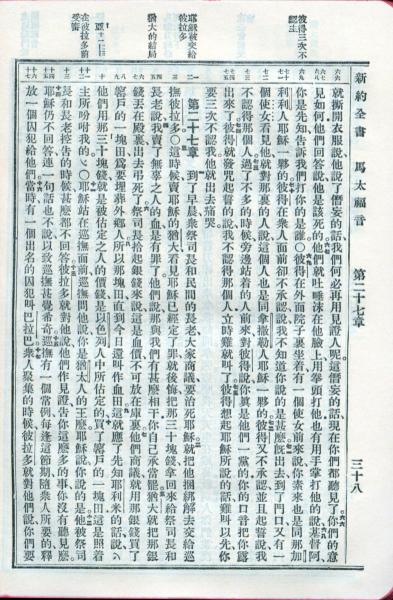 新約全書 馬太福音 第二十七章 三十八
彼得三次不
認主
就撕開衣服說他說了僭妄的話我們何必再用見證人呢這僭妄的話現在你們都聽見了你們的意
見如何他們回答說他是該死的他們就吐唾沫在他臉上用拳頭打他也有用手掌打他的說基督阿
你是先知告訴我們打你的是誰○彼得在外面院子裏坐着有一個使女前來說你素來也是同那加
利利人耶穌一夥的彼得在衆人面前却不承認說我不知道你說的是甚麼旣出去到了門口又有一
個使女看見他就對那裏的人說這個人也是拿撒勒人耶穌一夥的彼得又不承認並且起誓說我
不認得那個人過了不多的時候旁邊站着的人前來對彼得說你眞是他們一黨的你的口音把你露
出來了彼得就發咒起誓的說我不認得那個人立時雞就叫了彼得想起耶穌所說的話雞叫以先你
要三次不認我他就出去痛哭
耶穌被交給
彼拉多
猶大的結局
第二十七章 到了早晨衆祭司長和民間的長老大家商議要治死耶穌就把他捆綁解去交給巡
撫彼拉多○這時候賣耶穌的猶大看見耶穌已經定了罪就後悔把那三十塊錢拿回來給祭司長和
長老說我賣了無辜之人的血是有罪了他們說那與我們有甚麼相干你自己承當罷猶大就把那銀
錢丟在殿裏出去吊死了祭司長拾起銀錢來說這是血價不可放在庫裏他們商議就用那銀錢買了
窰戶的一塊田爲要埋葬外鄉人所以那塊田直到今日還叫作血田這就應了先知耶利米的話說
他們用那三十塊錢就是被估定之人的價錢是以色列人中所估定的買了窰戶的一塊田這是照着
在彼拉多前
受審
主所吩咐我的○耶穌站在巡撫面前巡撫問他說你是猶太人的王麼耶穌說你說的是他被祭司
長和長老控告的時候甚麼都不回答彼拉多就對他說他們作見證告你這麼多的事你沒有聽見麼
耶穌仍不回答連一句話也不說以致巡撫甚覺希奇巡撫有一個常例每逢這節期隨衆人所要的釋
放一個囚犯給他們當時有一個出名的囚犯叫巴拉巴衆人聚集的時候彼拉多就對他們說你們要